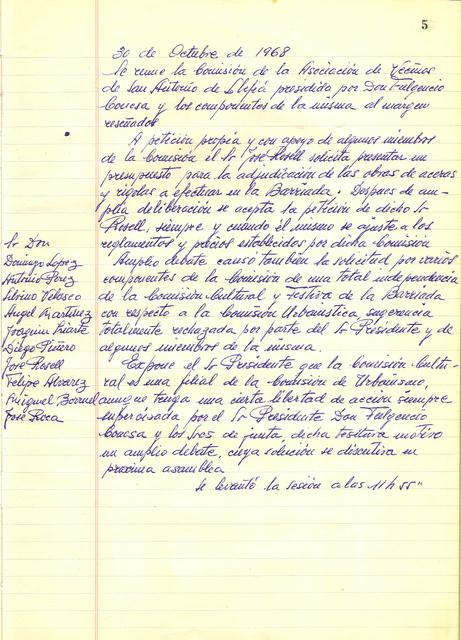 5
30 de Octubre de 1968
Se reune la Comisión de la Asociación de Vecinos
de San Antonio de Llefiá presidida por Don Fulgencio
Conesa y los componentes de la misma al margen
reseñados
A petición propia y con apoyo de algunos miembros
de la Comisión el Sr José Rosell solicita presentar un
presupuesto para la adjudicación de las obras de aceras
y rigolas a efectuar en la Barriada. Despues de am-
plia deliberación se acepta la petición de dicho Sr
Rosell, siempre y cuando el mismo se ajuste a los
reglamentos y precios establecidos por dicha Comisión
Amplio debate causó también la solicitud por varios
componentes de la Comisión de una total independencia
de la Comisión Cultural y Festiva de la Barriada
con respecto a la Comisión Urbanistica, sugerencia
totalmente rechazada por parte del Sr Presidente y de
algunos miembros de la misma.
Expone el Sr Presidente que la Comisión Cultu-
ral es una filial de la Comisión de Urbanismo,
aunque tenga una cierta libertad de acción siempre
supervisada por el Sr Presidente Don Fulgencio
Conesa y los Sres de junta, dicha tesitura motivo
un amplio debate, cuya solución se discutira en
proxima asamblea
Se levantó la sesión a las 11 h 55"
Sr Don
Domingo Lopez
Antonio Perez
Silvino Velasco
Angel Martinez
Joaquin Iriarte
Diego Piñero
José Rosell
Felipe Alvarez
Miguel Bernuel
José Roca